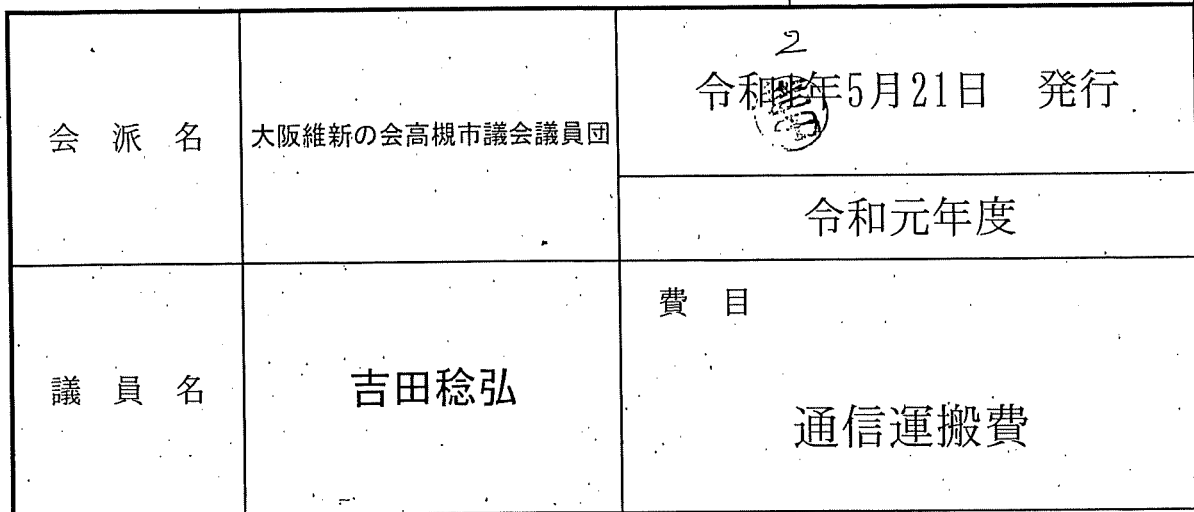 会派名
大阪維新の会高槻市議会議員団
2
令和年5月21日 発行
令和元年度
議員名
吉田稔弘
費目
通信運搬費